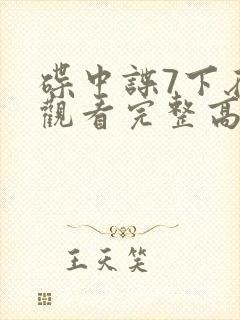 碟中諜7下
觀看完整高
王天笑